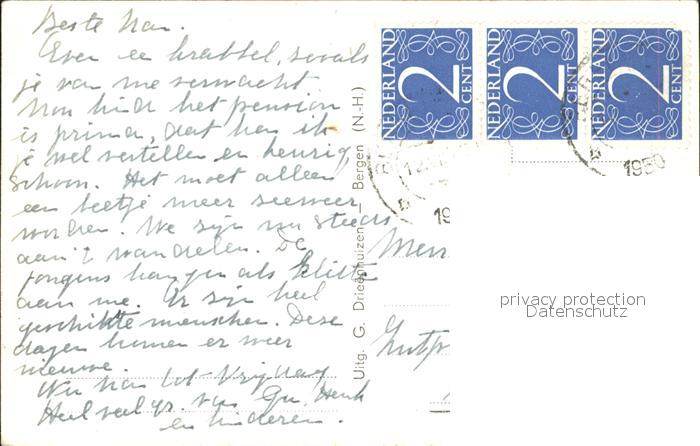 Beste Nan.
Even een krabbel, zooals
je van me verwacht
Nou kind het pension
is prima, dat kan ik
je wel vertellen en keurig
schoon. Het moet alleen
een beetje meer zeeweer
worden. We zijn nu steeds
aan 't wandelen. De
jongens hangen als klitte
aan me. Er zijn heel
geschikte menschen. Deze
dagen komen er weer
nieuwe.
Nu Nan tot Vrijdag
Heel veel gr. van Gu, Henk
en kinderen.
Uitg. G. Drieënhuizen, Bergen (N.-H.)
NEDERLAND 2 CENT
NEDERLAND 2 CENT
NEDERLAND 2 CENT
1950
19
privacy protection
Datenschutz